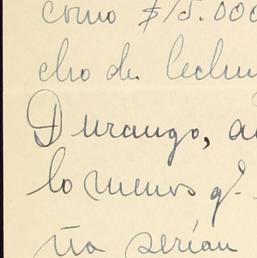 como $15.000
cho de lechu
Durango, a
lo menos q'.
ña serían